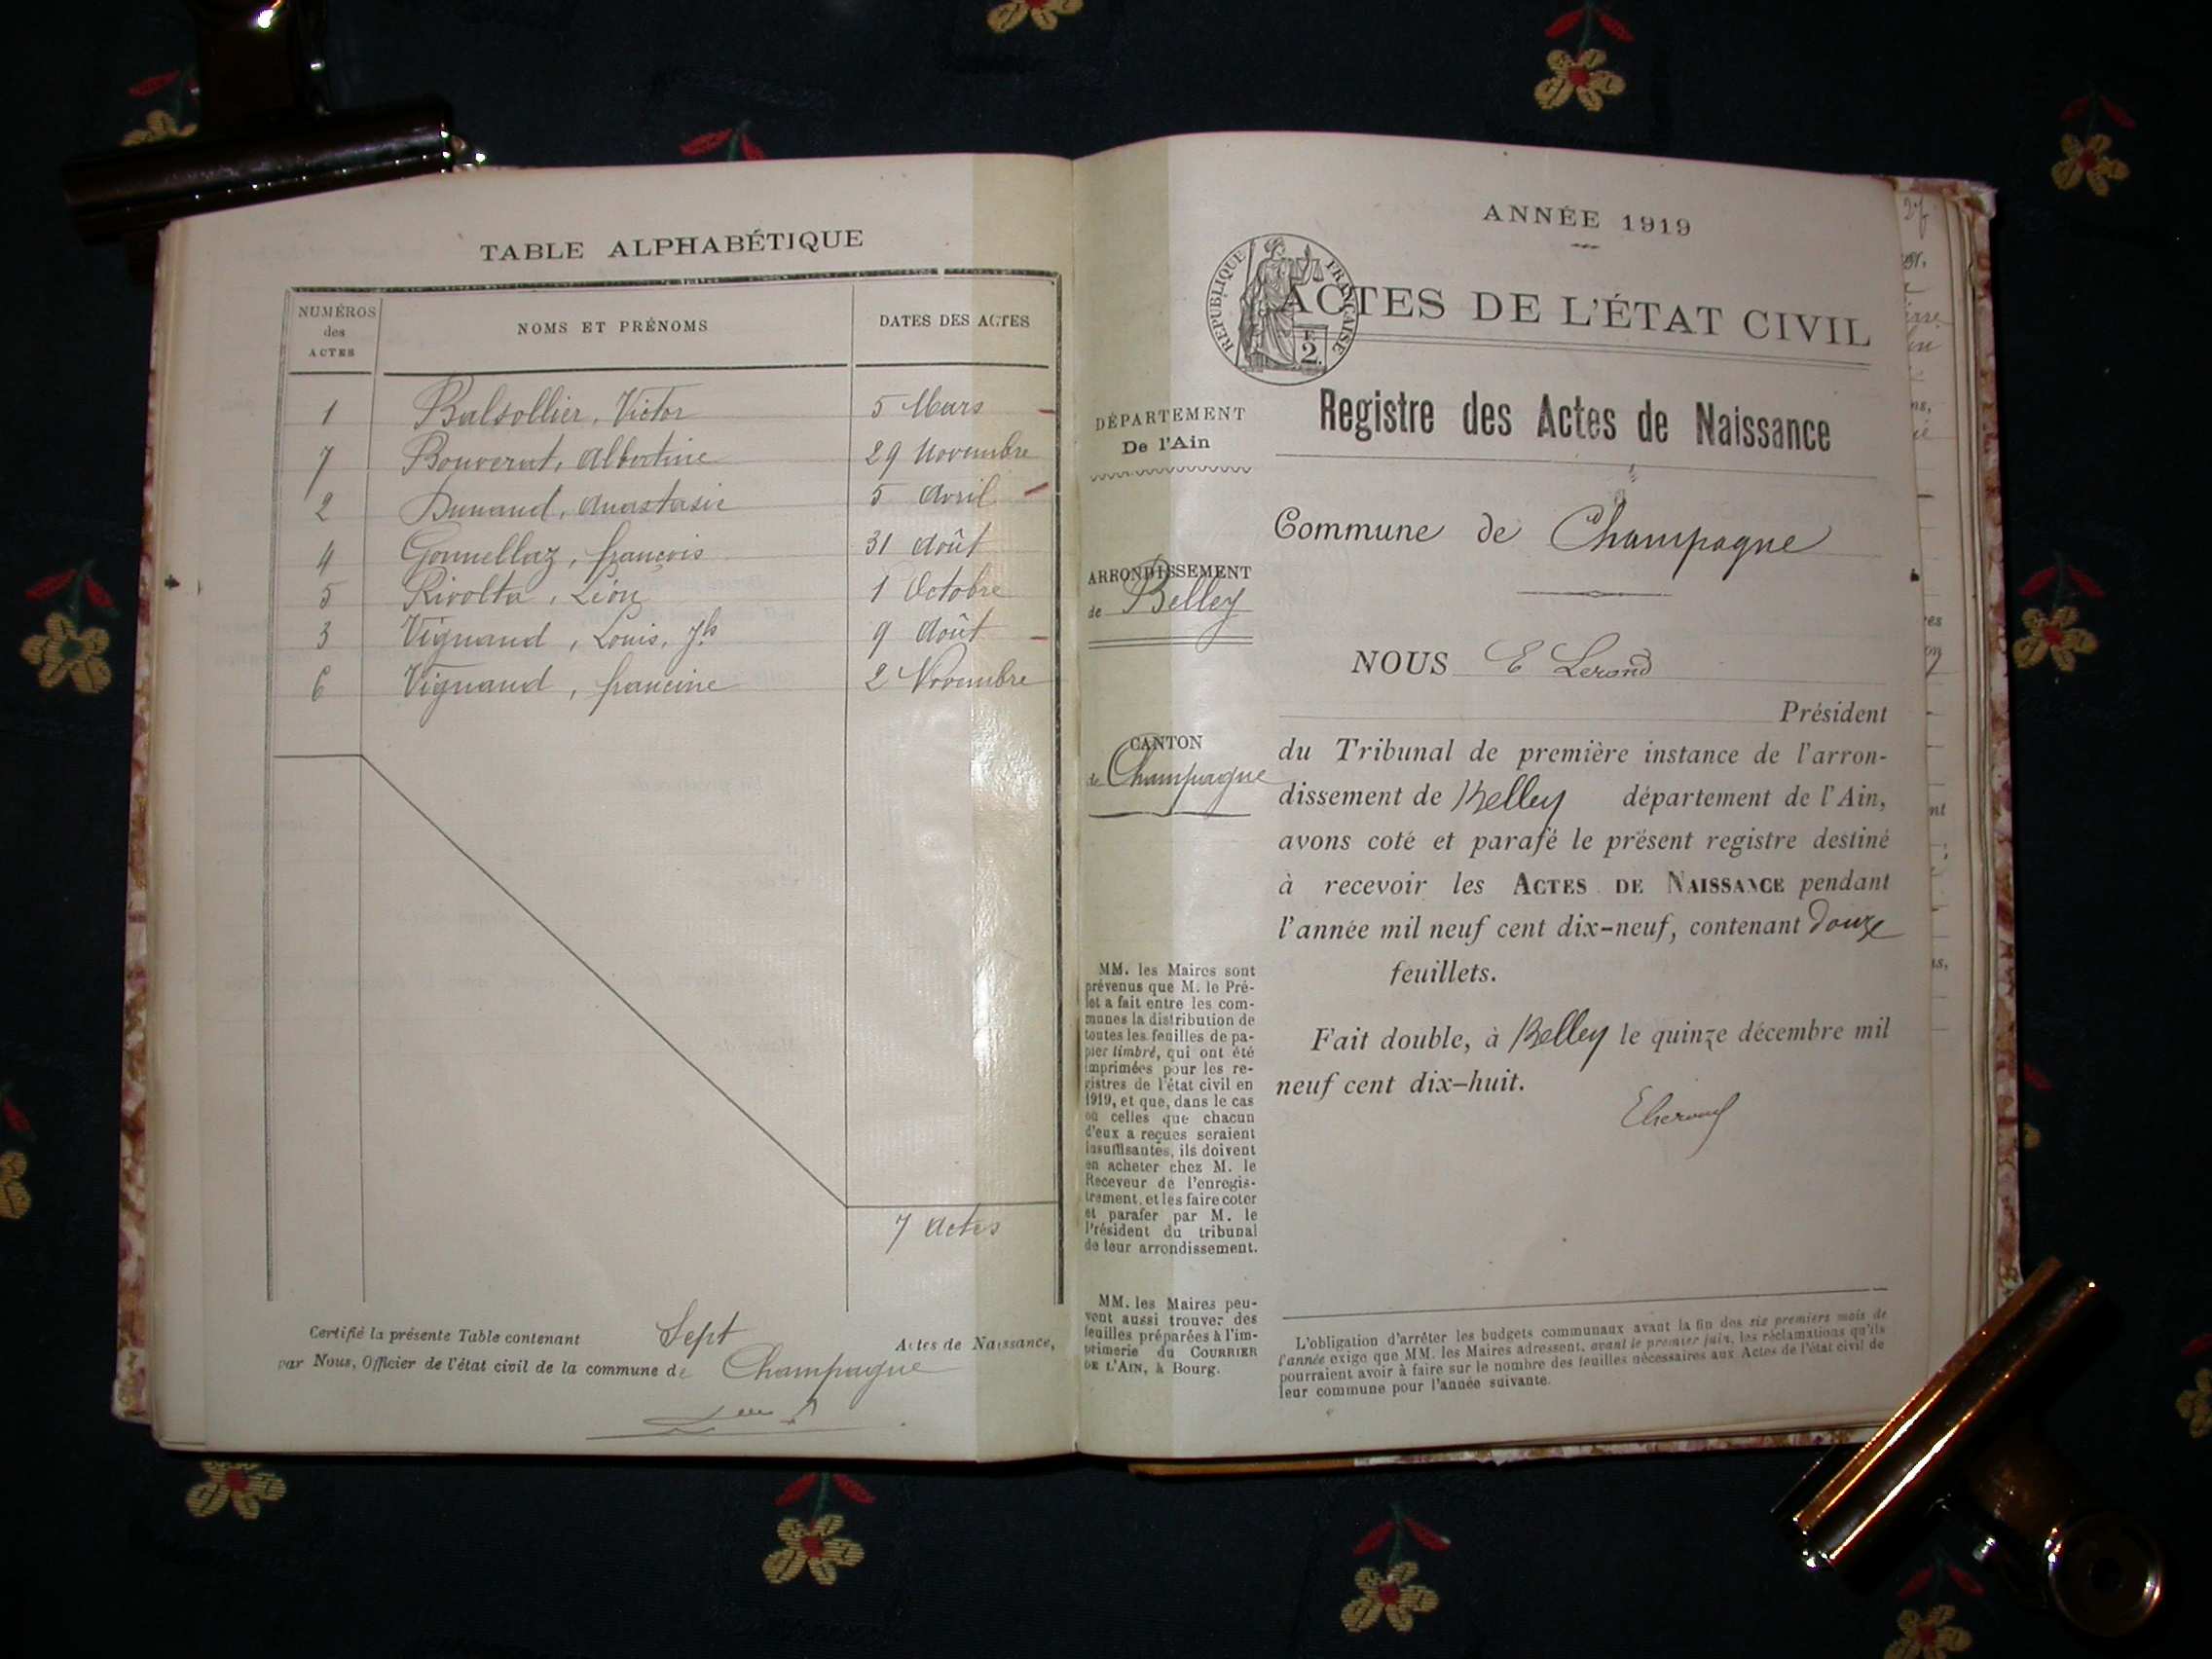 TABLE ALPHABÉTIQUE
NUMÉROS des ACTES
NOMS ET PRÉNOMS
DATES DES ACTES
1 Balsollier, Victor 5 Mars
7 Bouverat, Albertine 29 Novembre
2 Dunand, Anastasie 5 Avril
4 Gonnellaz, françois 31 Août
5 Rivolta, Léon 1 Octobre
3 Vignand, Louis, Jh 9 Août
6 Vignand, francine 2 Novembre
7 Actes
Certifié la présente Table contenant Sept Actes de Naissance,
par Nous, Officier de l'état civil de la commune de Champagne
ANNÉE 1919
RÉPUBLIQUE FRANÇAISE
2
ACTES DE L'ÉTAT CIVIL
DÉPARTEMENT
De l'Ain
ARRONDISSEMENT
de Belley
CANTON
de Champagne
MM. les Maires sont
prévenus que M. le Pré-
fet a fait entre les com-
munes la distribution de
toutes les feuilles de pa-
pier timbré, qui ont été
imprimées pour les re-
gistres de l'état civil en
1919, et que, dans le cas
où celles que chacun
d'eux a reçues seraient
insuffisantes, ils doivent
en acheter chez M. le
Receveur de l'enregis-
trement, et les faire coter
et parafer par M. le
Président du tribunal
de leur arrondissement.
MM. les Maires peu-
vent aussi trouver des
feuilles préparées à l'im-
primerie du COURRIER
DE L'AIN, à Bourg.
Registre des Actes de Naissance
Commune de Champagne
NOUS E
Président
du Tribunal de première instance de l'arron-
dissement de Belley département de l'Ain,
avons coté et parafé le présent registre destiné
à recevoir les ACTES DE NAISSANCE pendant
l'année mil neuf cent dix-neuf, contenant douze
feuillets.
Fait double, à Belley le quinze décembre mil
neuf cent dix-huit.
L'obligation d'arrêter les budgets communaux avant la fin des six premiers mois de
l'année exige que MM. les Maires adressent, avant le premier juin, les réclamations qu'ils
pourraient avoir à faire sur le nombre des feuilles nécessaires aux Actes de l'état civil de
leur commune pour l'année suivante.